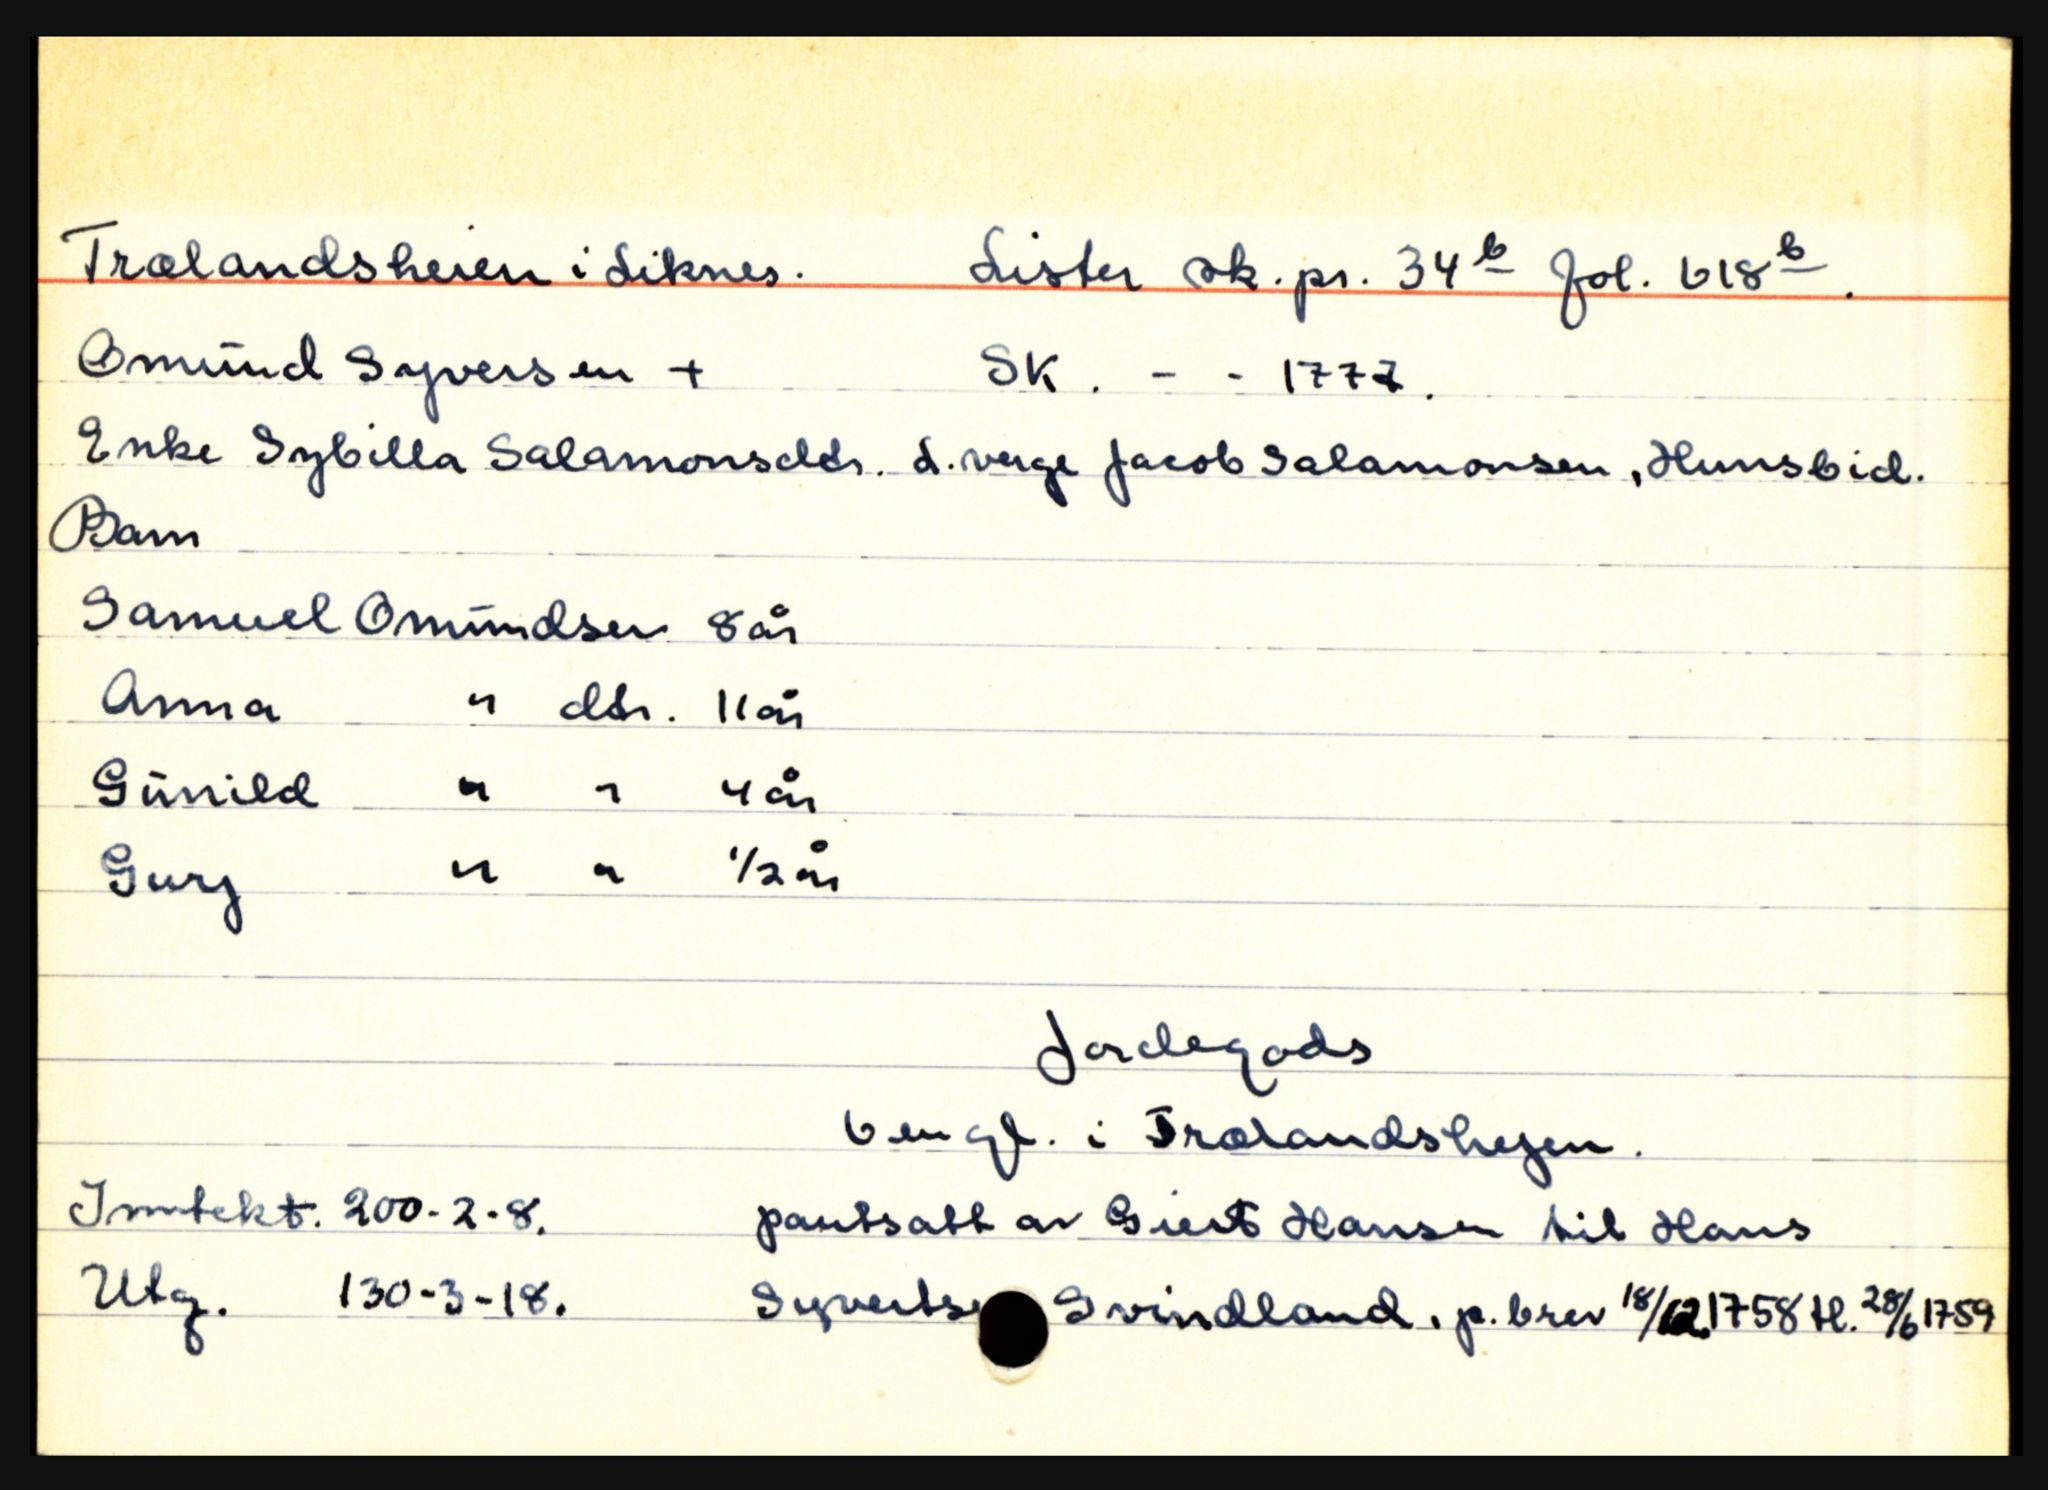 Trælandsheien i Liknes. Lister sk. pr. 34b fol. 618b.
Omund Syversen + SK. - - 1777.
Enke Sybilla Salamonsdtr. L. verge Jacob Salamonsen, Hunsbid.
Barn
Samuel Omundsen 8 år
Anna " dtr. 11 år
Gunild " " 4 år
Gurj " " 1/2 år
Jordegods
6 engl. i Trælandshejen.
Inntekt. 200-2-8. pantsatt av Giert Hansen til Hans
Utg. 130-3-18. Syverts Gvindland, p. brev 18/12.1758 tl. 28/6 1759